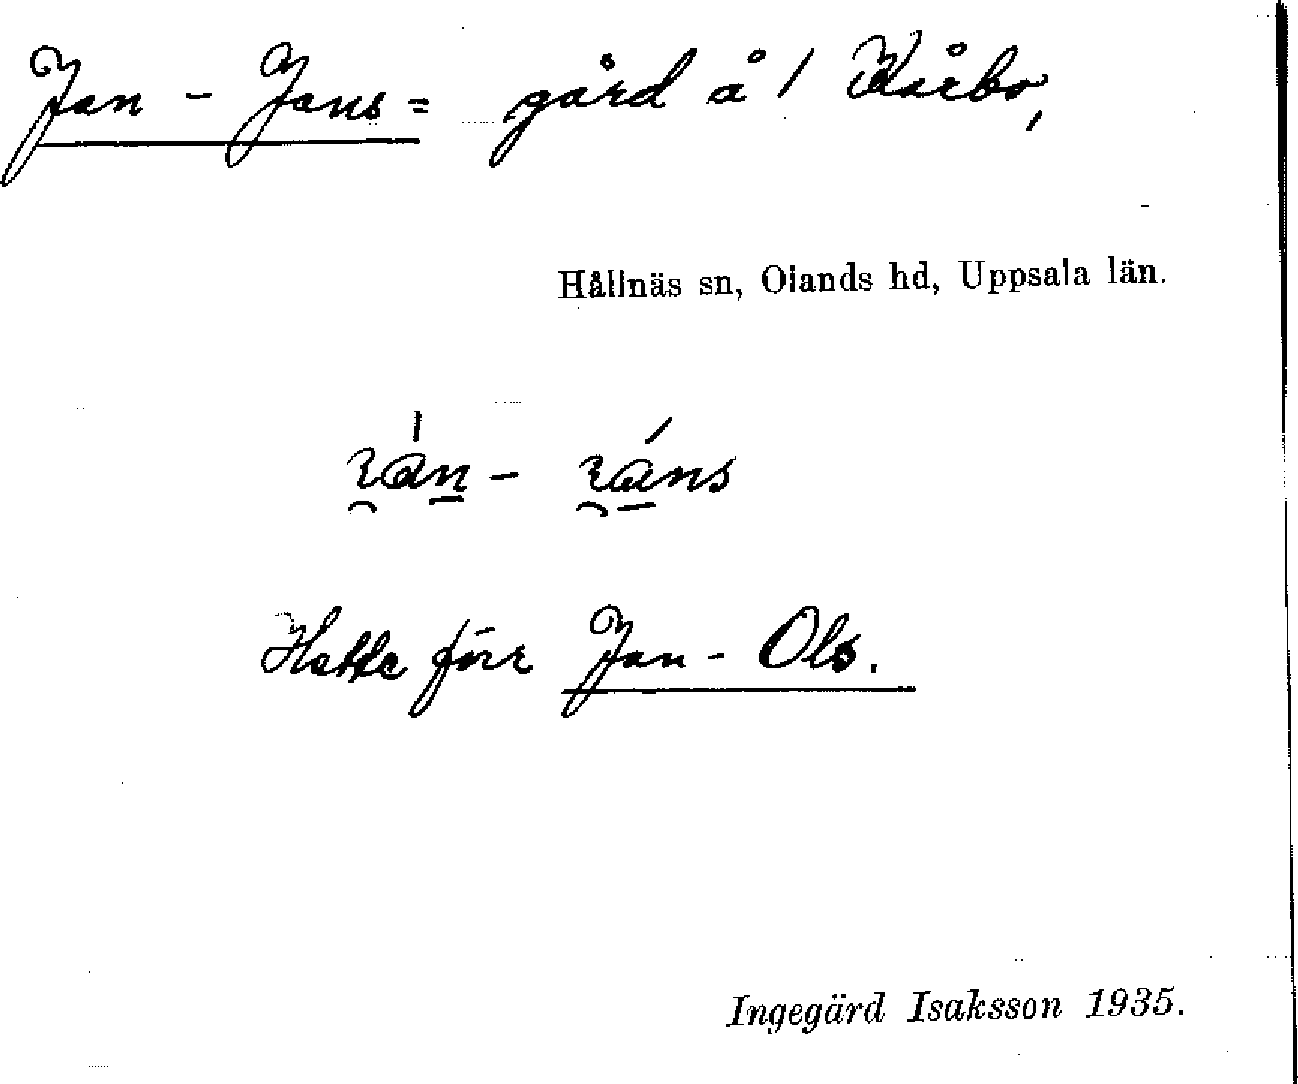 Jan - Jans = gård å 1 Kårbo,
Hållnäs sn, Olands hd, Uppsala län.
Hette förr Jan - Ols.
Ingegärd Isaksson 1935.